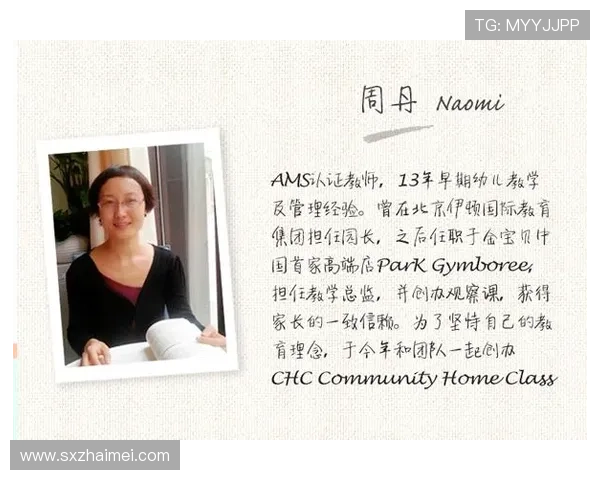 TG: MYYJJPP
周丹 Naomi
AMS认证教师，13年早期幼儿教学
及管理经验。曾在北京伊顿国际教育
集团担任园长，之后任职于金宝贝中
国首家高端店Park Gymboree,
担任教学总监，并创办观察课，获得
家长的一致信赖。为了坚持自己的教
育理念，于今年和团队一起创办
CHC Community Home Class
www.sxzhaimei.com